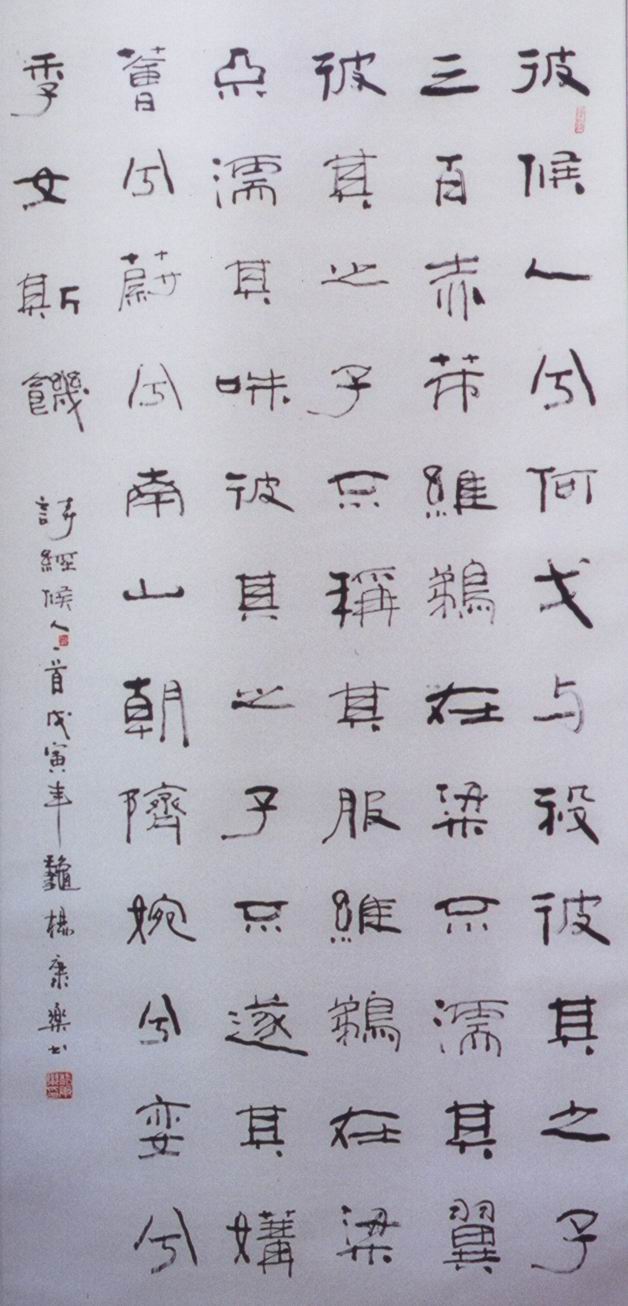 彼候人兮何戈与祋彼其之子
三百赤芾維鵜在梁不濡其翼
彼其之子不稱其服維鵜在梁
不濡其咮彼其之子不遂其媾
薈兮蔚兮南山朝隮婉兮娈兮
季女斯饑
詩經候人一首戊寅年龝楊康樂书